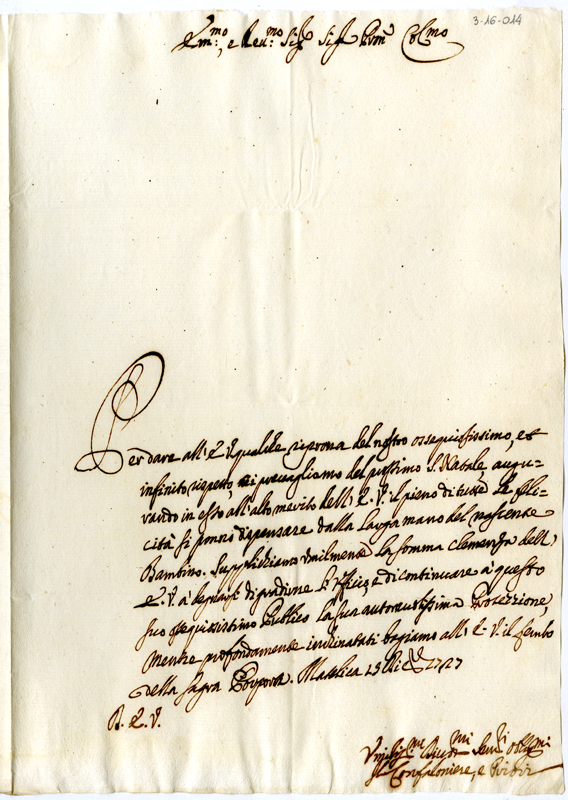 3-16-014
Em:mo, e Reu:mo Sig.r Sig.r Pron Col.mo
Per dare all'E.V. qualche riproua del nostro ossequiosissimo, et
infinito rispetto, ci preuagliamo del prossimo S. Natale, augu=
rando in esso all'alto merito dell'E.V. il pieno di tutte le feli=
cità si ponno dispensare dalla larga mano del nascente
Bambino. Supplichiamo umilmente la somma clemenza dell'
E.V. à degnarsi di gradirne l'Ufficio, e di continuare à questo
suo ossequiosissimo Publico la sua autoreuolissima Protezzione,
mentre profondamente inchinati bagiamo all'E.V. il lembo
della Sagra Porpora. Matelica 13 Dic. 1727
D. E. V.
Umiliss.mi Deuot.mi Seru.ri Obl.mi
Il Confaloniere, e Priori